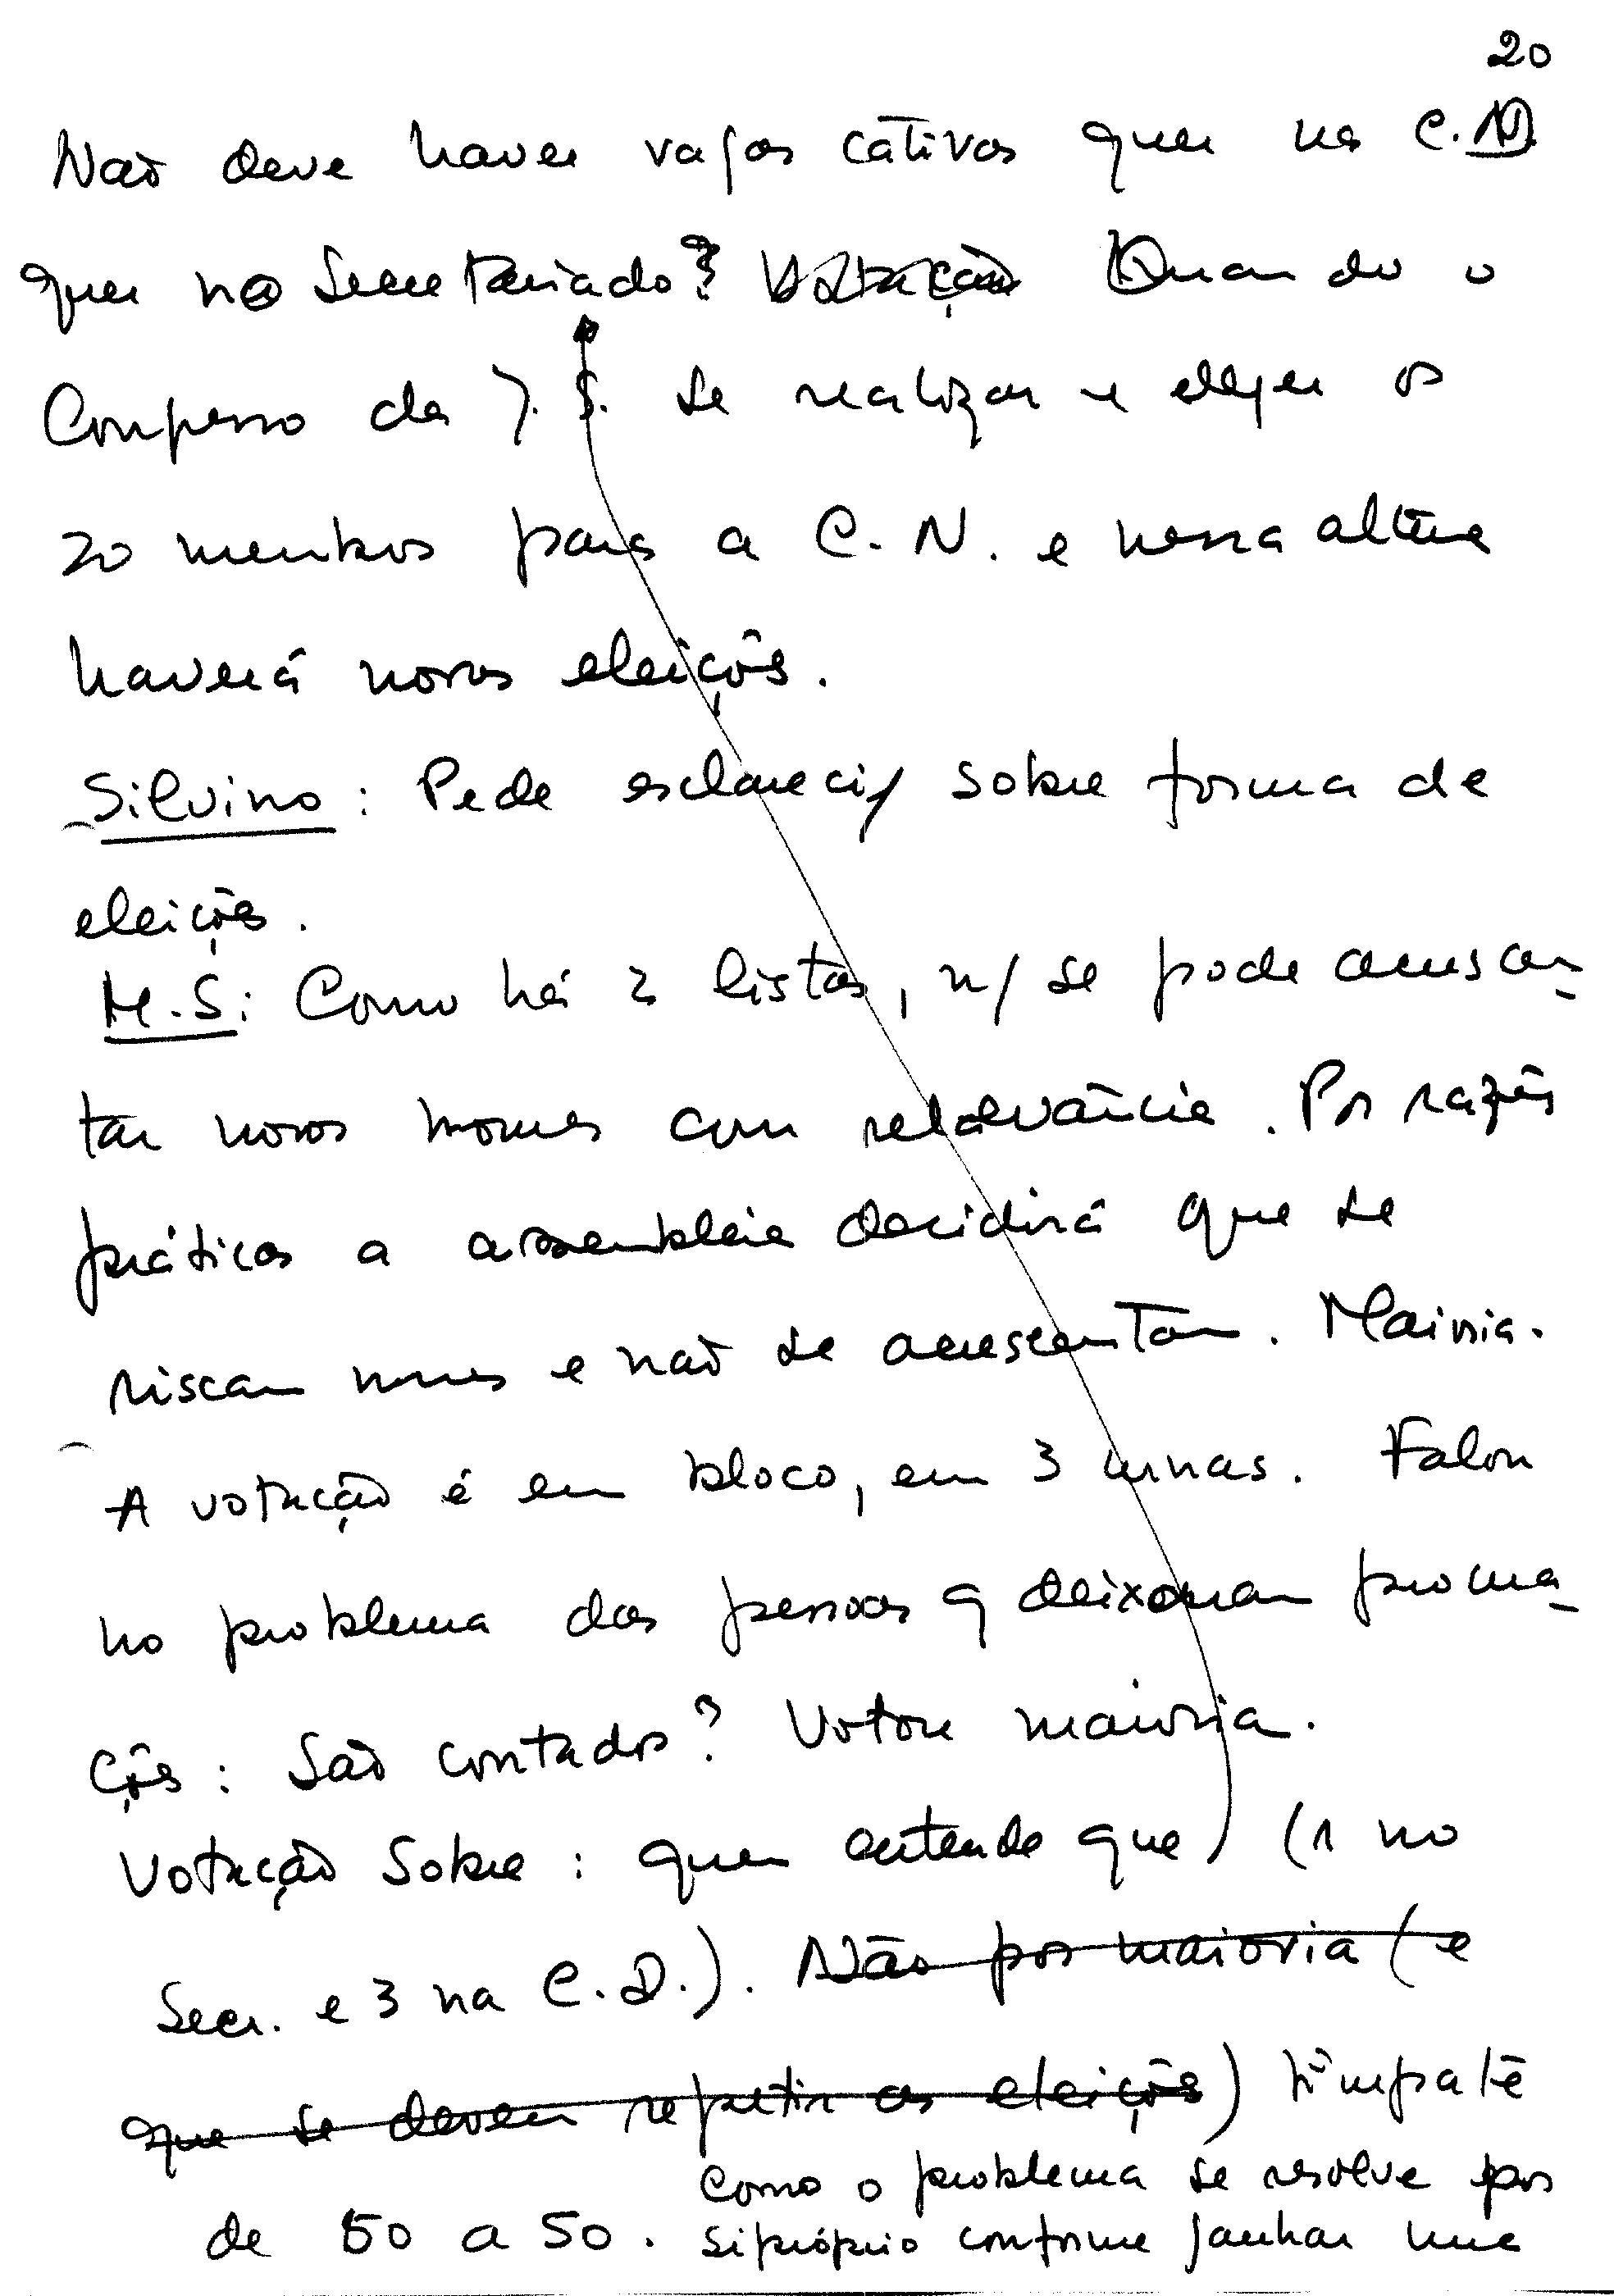 20
Não deve haver vagas cativas quer na C.D.
quer no Secretariado? Votação Quando o
Congresso da J.S. se realizar e eleger os
20 membros para a C.N. e nessa altura
haverá novas eleições.
Silvino: Pede esclareci/ sobre forma de
eleições.
M.S: Como há 2 listas, n/ se pode acrescen-
tar novos nomes com relevância. Por razões
práticas a assembleia decidirá que se
riscam nomes e não se acrescentam. Maioria.
A votação é em bloco, em 3 urnas. Falou
no problema das pessoas q deixaram procura-
ções: São contados? Votou maioria.
Votação sobre: quem entende que) (1 no
Secr. e 3 na C.D.). Não por maioria (e
que se devem repetir as eleições) empate
de 50 a 50. Como o problema se resolve por
si próprio conforme ganhar uma